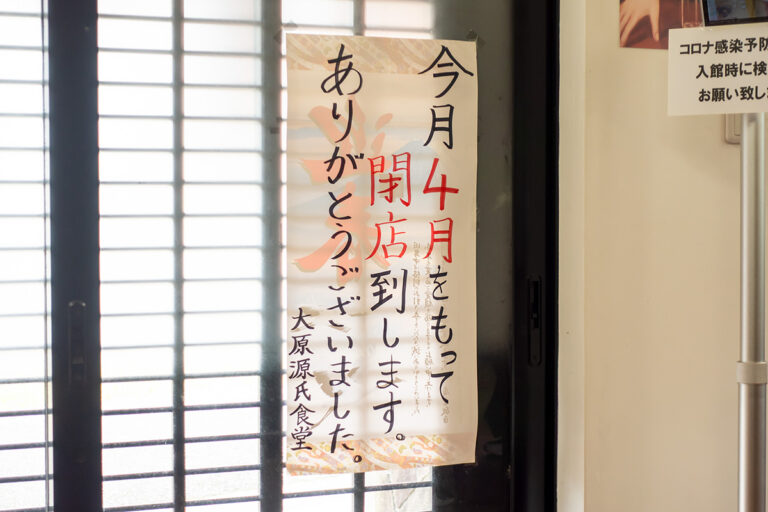 今月4月をもって
閉店到します。
ありがとうございました。
大原源氏食堂
コロナ感染予防
入館時に検
お願い致し